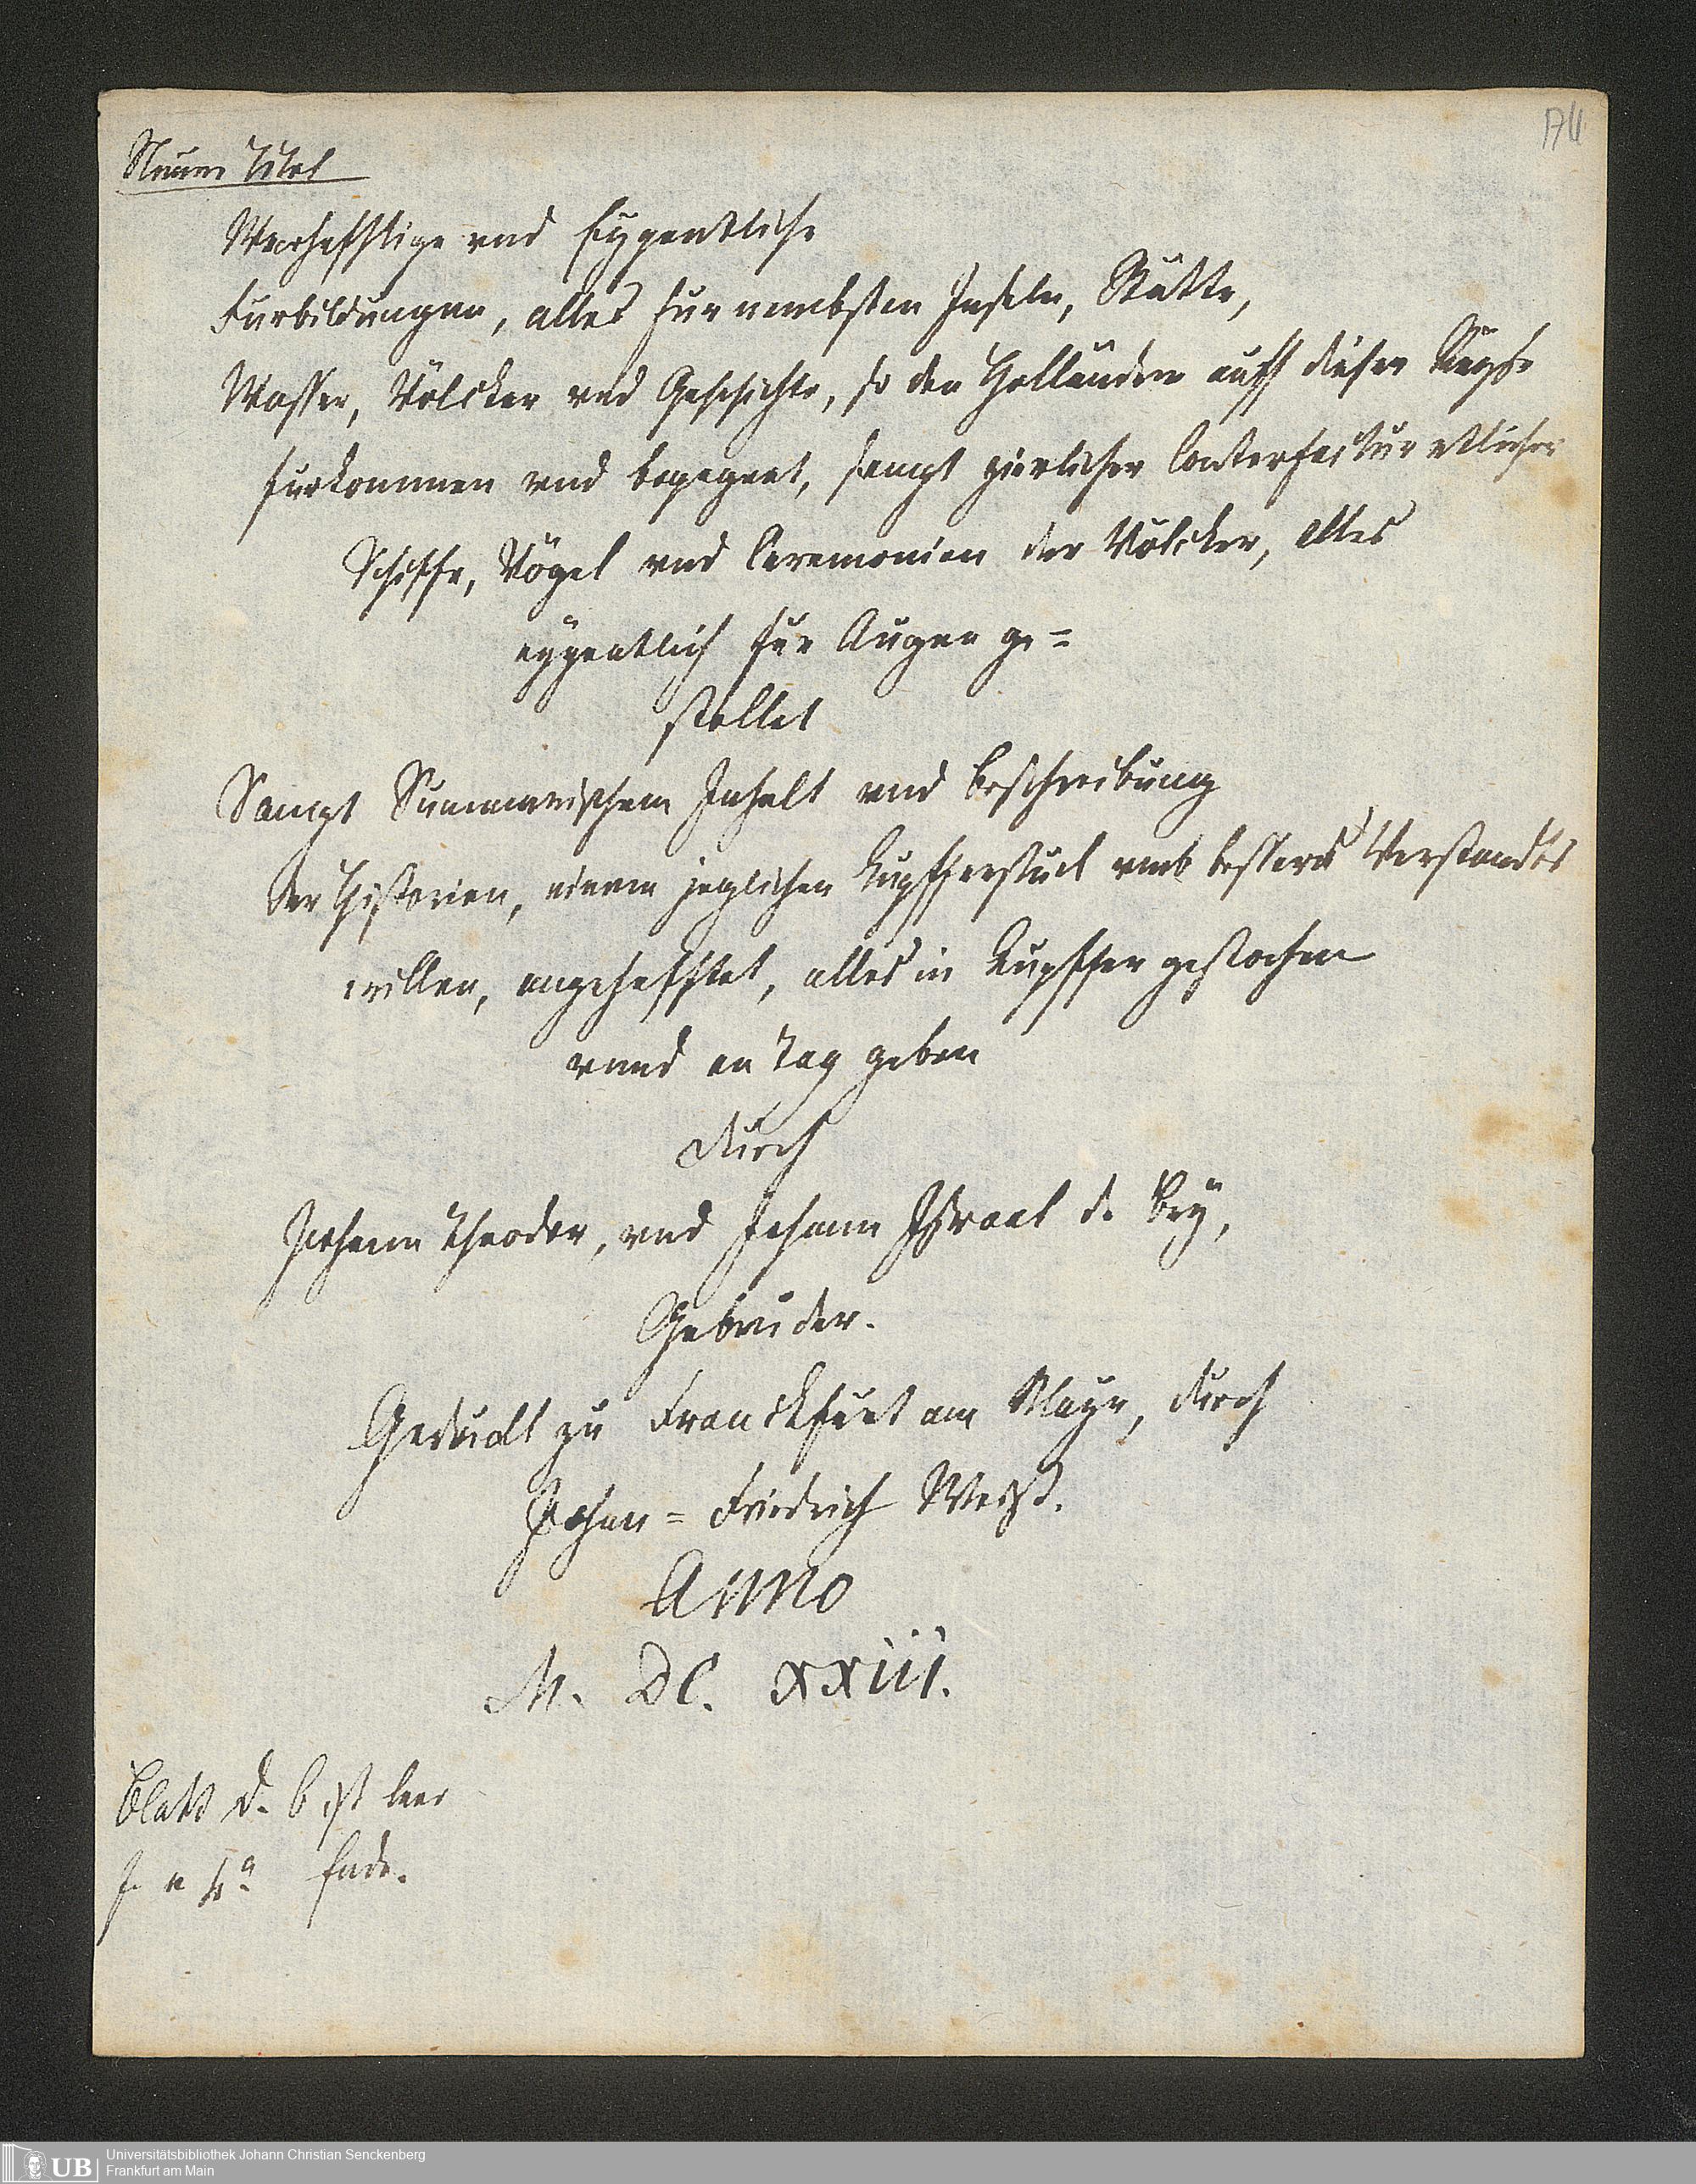 Neuer Titel
Warhafftige vnd Eygentliche
Furbildungen, aller furnembsten Inseln, Stätte,
Wasser, Völcker vnd Geschichte, so den Holländern auff dieser Reyse
furkommen vnd begegnet, sampt zierlicher Conterfeitur etlicher
Schiffe, Vögel vnd Ceremonien der Völcker, alles
eygentlich für Augen ge=
stellet
Sampt Summarischem Inhalt vnd beschreibung
der Historien, einem jeglichen Kupfferstuck vmb bessers Verstandes
willen, angehefftet, alles in Kupffer gestochen
vnnd an Tag geben
durch
Johann Theodor, vnd Johann Israel de Bry,
Gebrüder.
Gedruckt zu Franckfurt am Mayn, durch
Johan=Friedrich Weiß.
Anno
M. DC. XXIII.
Blatt d. b ist leer
Ende.
Universitätsbibliothek Johann Christian Senckenberg
UB Frankfurt am Main